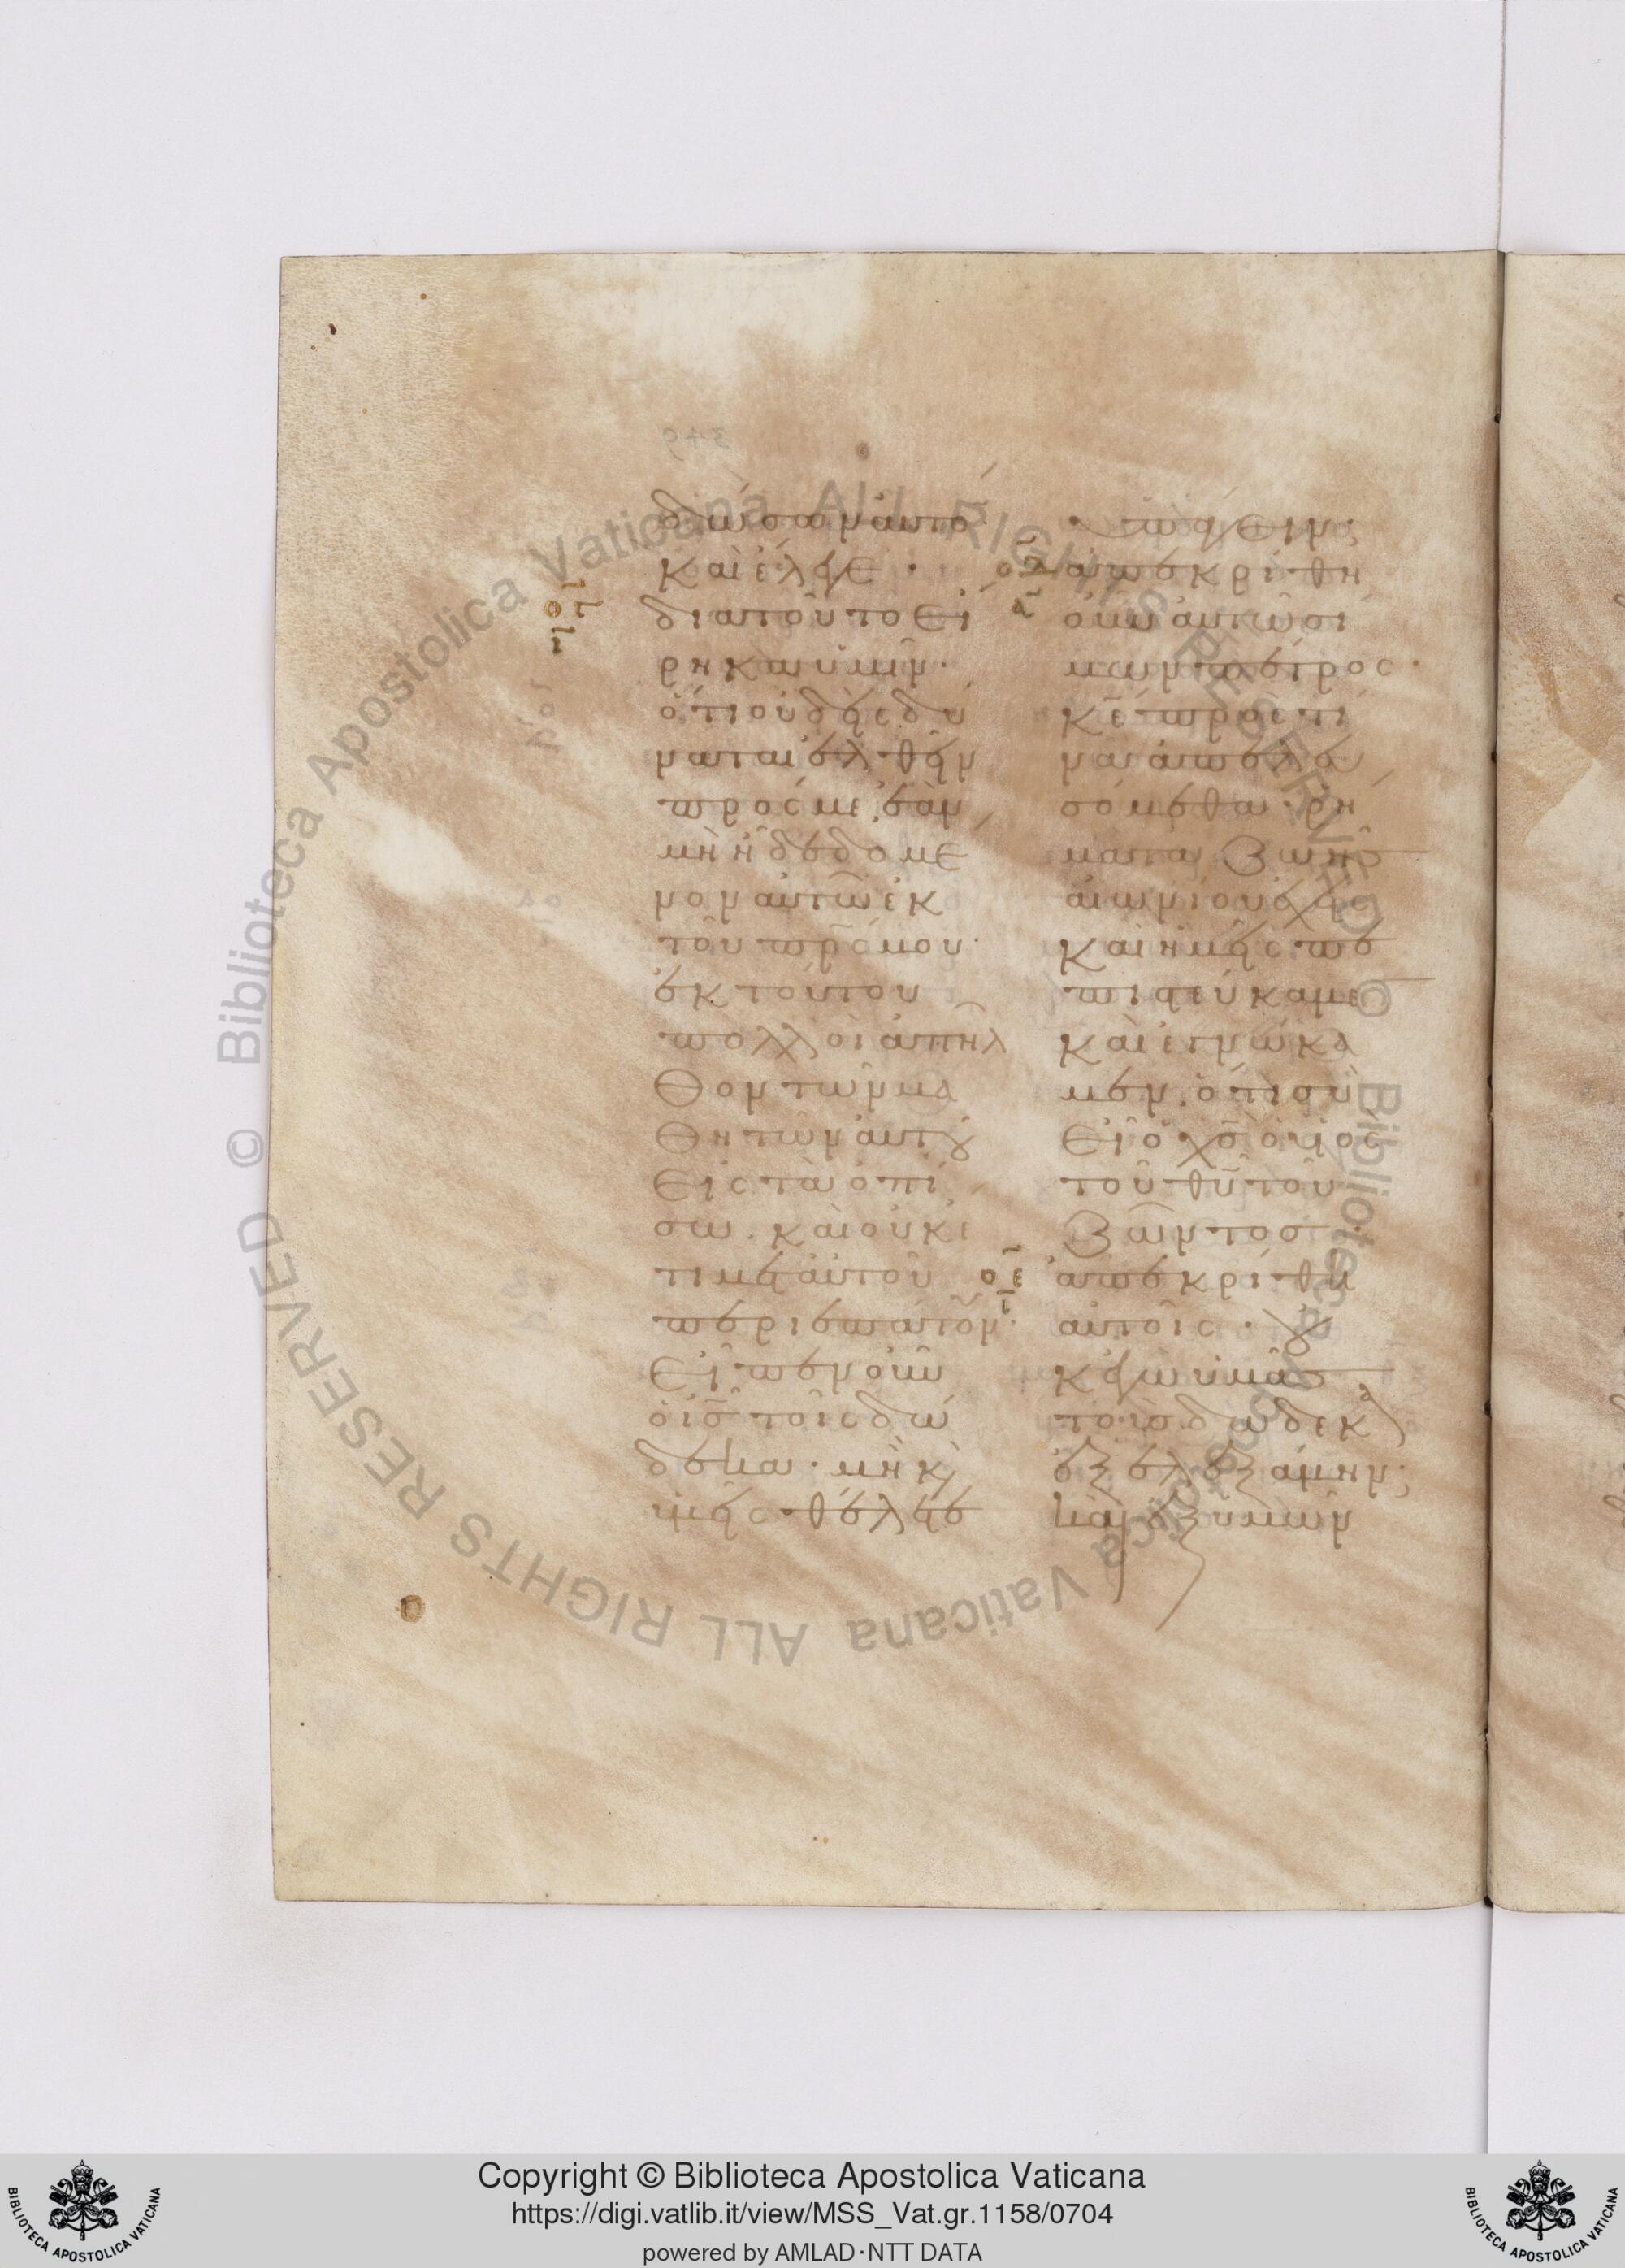 δώσων αὐτό
καὶ ἔλεγε·
διατοῦτο εἴ
ρηκα ὑμῖν·
ὅτι οὐδεὶς δύ
ναται ἐλθεῖν
πρός με ἐὰν
μὴ ἦ δεδομέ
νον αὐτῶ ἐκ
τοῦ πρς μου·
ἐκ τούτου
πολλοὶ ἀπῆλ
θον τῶν μα
θητῶν αὐτοῦ
εἰς τὰ ὀπί
σω. καὶ οὐκέ
τι μετ αὐτοῦ
περιεπάτουν·
εἶπεν οὖν
ὁ ις τοῖς δώ
δεκα· μὴ καὶ
ὑμεῖς θέλετε
ἀπεκρίθη
οὖν αὐτῶ σί
μων πέτρος·
κε πρὸς τί
να ἀπελευ
σόμεθα· ρή
ματα ζωῆς
αἰωνίου ἔχεις
καὶ ἡμεῖς πε
πιστεύκαμεν
καὶ ἐγνώκα
μεν. ὅτι σὺ
εἶ ὁ χς ὁ υἱὸς
τοῦ θυ τοῦ
ζῶντος·
ἀπεκρίθη
αὐτοῖς· οὐ
κ ἐγὼ ὑμᾶς
τοὺς δώδεκα
ἐξελεξάμην·
καὶ ἐξ ὑμῶν
© Biblioteca Apostolica Vaticana ALL RIGHTS RESERVED
© Biblioteca Apostolica Vaticana ALL RIGHTS RESERVED
Copyright © Biblioteca Apostolica Vaticana
https://digi.vatlib.it/view/MSS_Vat.gr.1158/0704
powered by AMLAD·NTT DATA
BIBLIOTECA APOSTOLICA VATICANA
BIBLIOTECA APOSTOLICA VATICANA